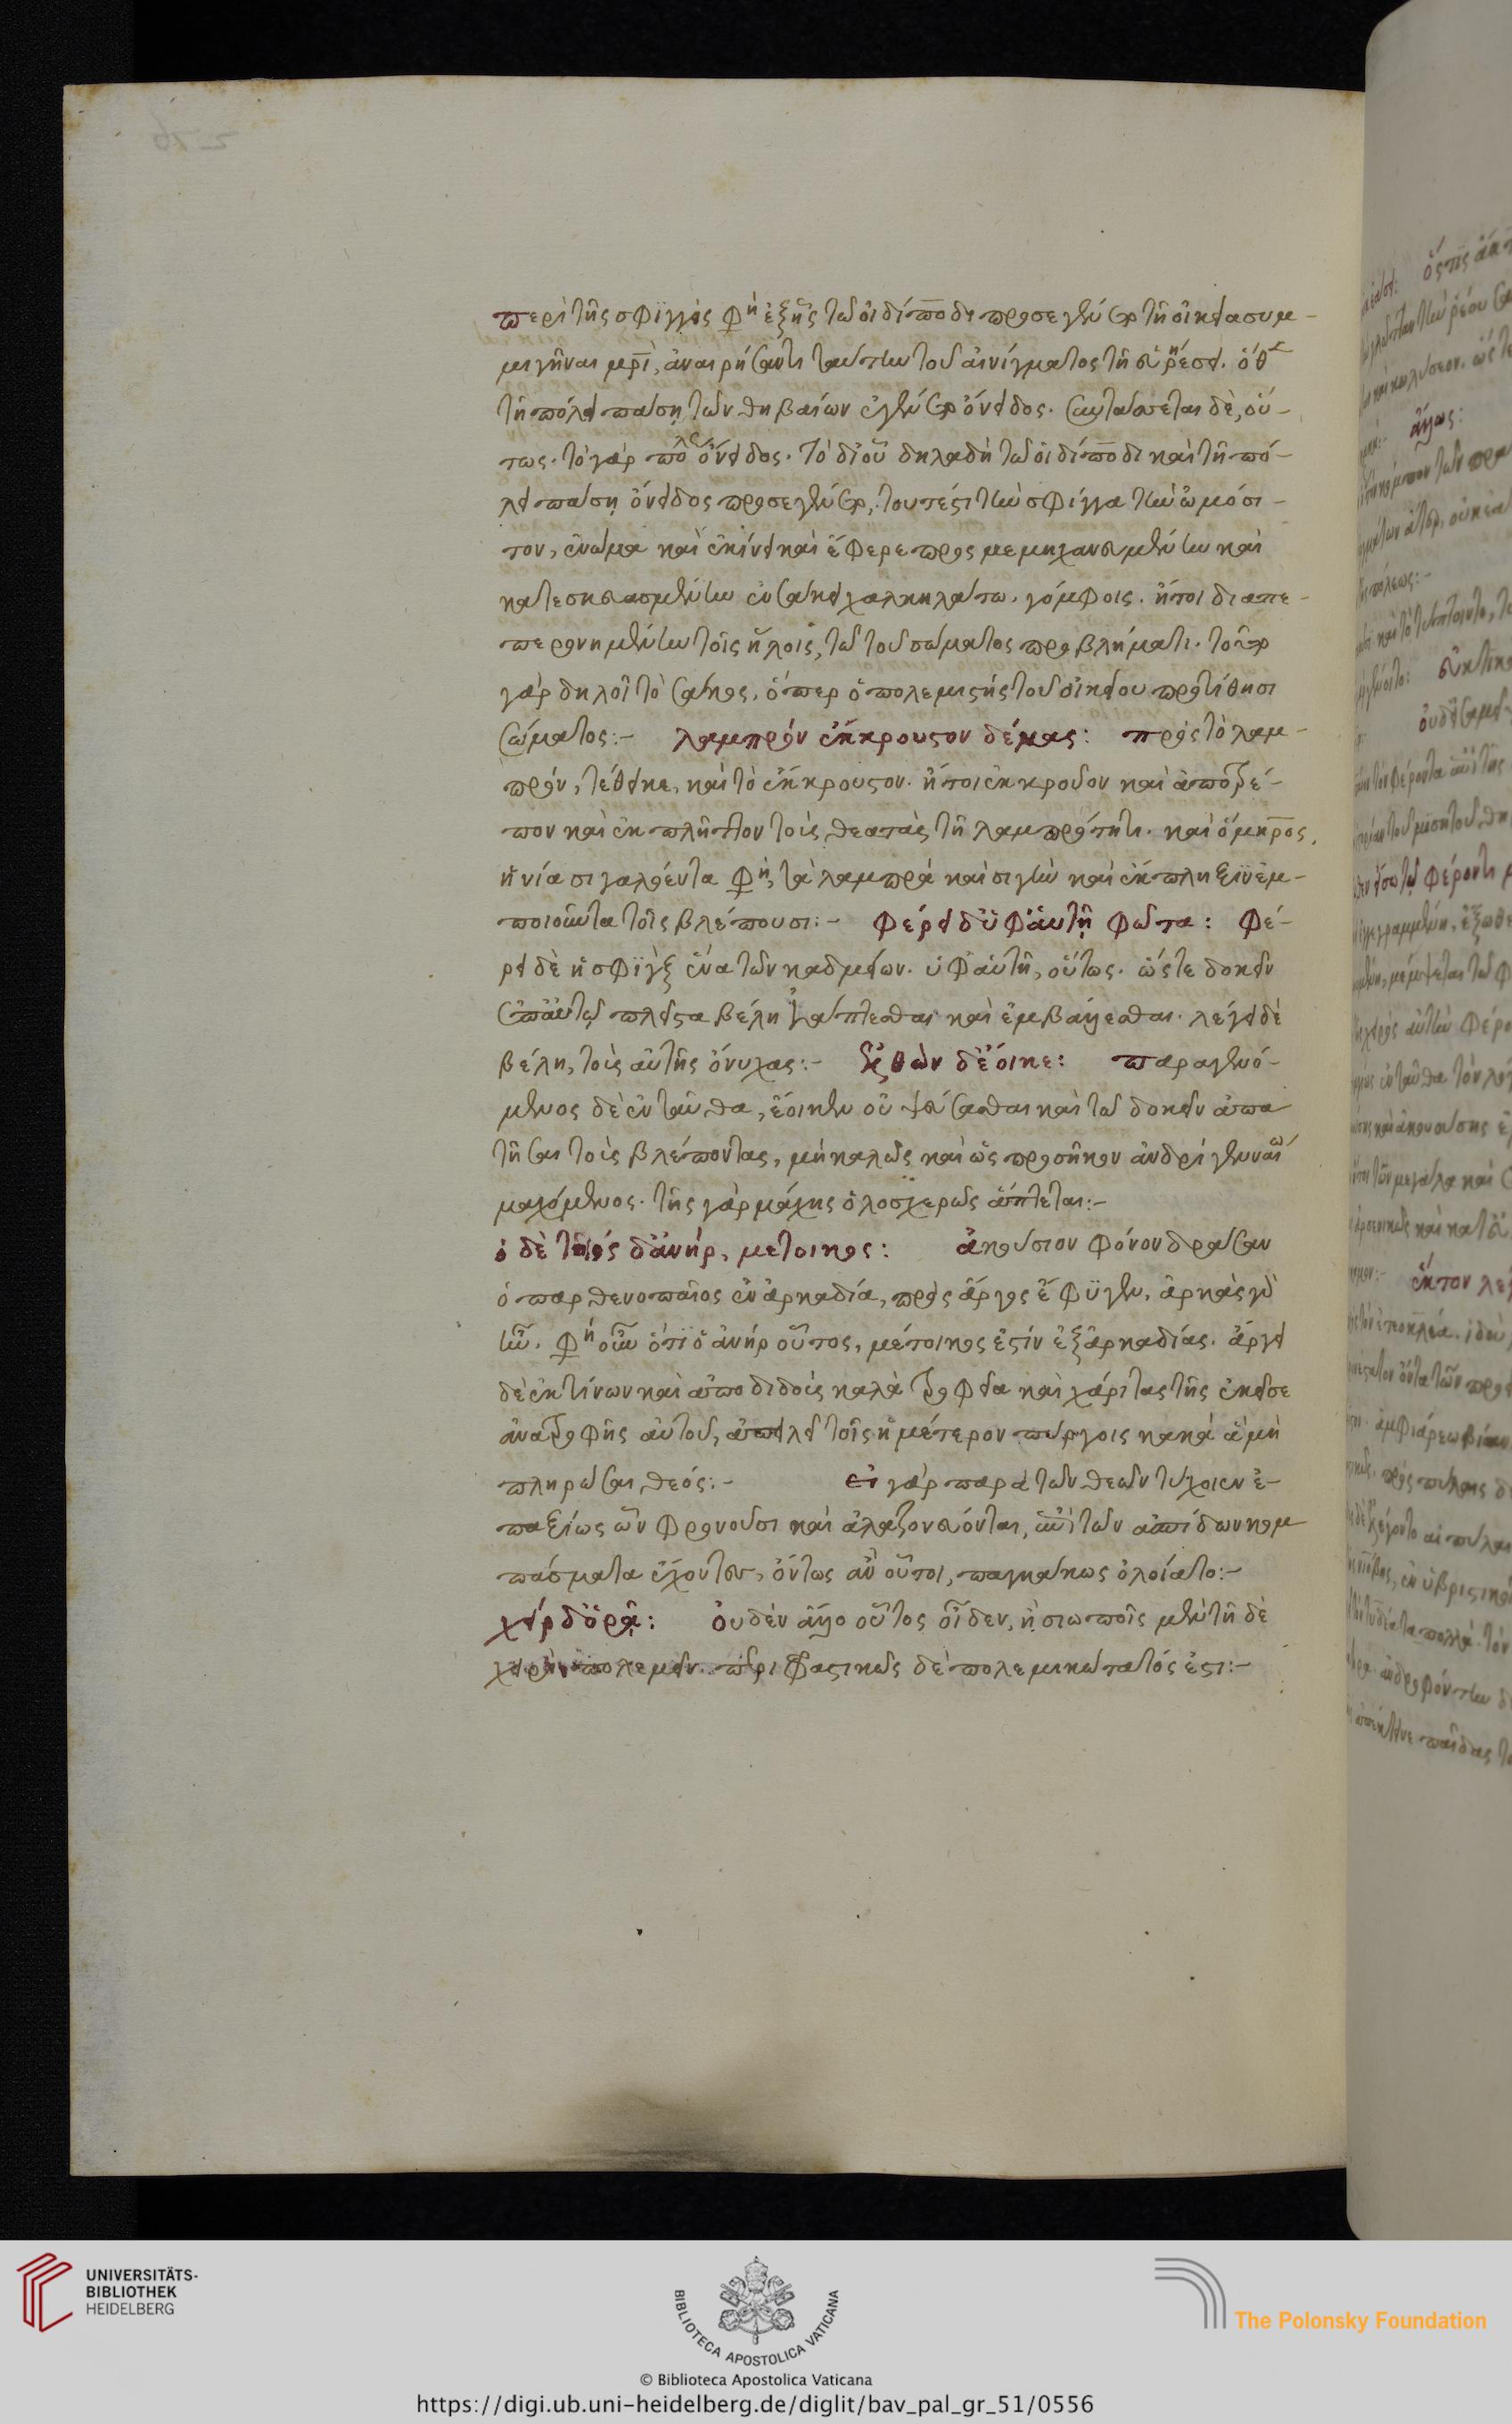 περὶ τῆς σφιγγὸς φη ἐξῆς τῶ οἰδίποδι προσεγένετο τῆ οἰκεία συμ-
μιγῆναι μρὶ, ἀναιρήσαντι ταύτην τοῦ αἰνίγματος τῆ εὑρέσει. ὅθεν
τῆ πόλει πάσῃ τῶν θηβαίων ἐγένετο ὄνειδος. συντάσσεται δὲ, οὕ-
τως. τὸ γὰρ πόλεως ὄνειδος. τὸ δι' οὗ δηλαδὴ τῶ οἰδίποδι καὶ τῆ πό-
λει πάσῃ ὄνειδος προσεγένετο, τουτέστι τὴν σφίγγα τὴν ὠμόσι-
τον, ἐνώμα καὶ ἐκίνει καὶ ἔφερε προσμεμηχανευμένην καὶ
κατεσκευασμένην ἐν σάκει χαλκηλάτω. γόμφοις. ἤτοι διαπε-
περονημένην τοῖς ἥλοις, τῶ τοῦ σώματος προβλήματι. τοῦτο
γὰρ δηλοῖ τὸ σάκος, ὅπερ ὁ πολεμιστὴς τοῦ οἰκείου προτίθησι
σώματος:- λαμπρὸν ἔκκρουστον δέμας: πρὸς τὸ λαμ-
πρὸν, τέθεικε, καὶ τὸ ἔκκρουστον. ἤτοι ἐκκροῦον καὶ ἀποτρέ-
πον καὶ ἐκπλῆττον τοὺς θεατὰς τῆ λαμπρότητι. καὶ ὅμηρος,
ἡνία σιγαλόεντα φη, τὰ λαμπρὰ καὶ σιγὴν καὶ ἔκπληξιν ἐμ-
ποιοῦντα τοῖς βλέπουσι:- φέρει δ' ὑφ' αὑτῆ φῶτα: φέ-
ρει δὲ ἡ σφὶγξ ἕνα τῶν καδμείων. ὑφ' αὑτῆ, οὕτως. ὥστε δοκεῖν
ἐπ' αὐτῶ πλεῖστα βέλη ἰάπτεσθαι καὶ ἐμβάλλεσθαι. λέγει δὲ
βέλη, τοὺς αὐτῆς ὄνυχας:- ἐλθὼν δ' ἔοικε: παραγενό-
μενος δὲ ἐνταῦθα, ἔοικεν οὐ ψεύσασθαι καὶ τῶ δοκεῖν ἀπα
τῆσαι τοὺς βλέποντας, μὴ καλῶς καὶ ὡς προσῆκον ἀνδρὶ γενναίω
μαχόμενος. τῆς γὰρ μάχης ὁλοσχερῶς ἅπτεται:-
ὁ δὲ τοιός δ' ἀνὴρ, μέτοικος: ἀκούσιον φόνον δράσαν
ὁ παρθενοπαῖος ἐν ἀρκαδία, πρὸς ἄργος ἔφυγεν. ἀρκὰς γὰρ
ἦν. φη οὖν ὅτι ὁ ἀνὴρ οὗτος, μέτοικός ἐστιν ἐξ ἀρκαδίας. ἄργει
δὲ ἐκτίνων καὶ ἀποδιδοὺς καλὰ τροφεῖα καὶ χάριτας τῆς ἐκεῖσε
ἀνατροφῆς αὐτοῦ, ἀπειλεῖ τοῖς ἡμέτερον πύργοις κακὰ ἃ μὴ
πληρώσαι θεός:- εἰ γὰρ παρὰ τῶν θεῶν τύχοιεν ἐ-
παξίως ὧν φρονοῦσι καὶ ἀλαζονεύονται, ἀντὶ τῶν ἀσπίδων κομ
πάσματα ἔχοντες, ὄντως ἂν οὗτοι, παγκάκως ὀλοίατο:-
χεὶρ δ' ὁρᾷ: οὐδὲν ἄλλο οὗτος οἶδεν, ἢ σιωποῖς μὲν τῆ δὲ
πολεμεῖν. περιφραστικῶς δὲ πολεμικώτατός ἐστι:-
UNIVERSITÄTS-
BIBLIOTHEK
HEIDELBERG
BIBLIOTECA APOSTOLICA VATICANA
The Polonsky Foundation
© Biblioteca Apostolica Vaticana
https://digi.ub.uni-heidelberg.de/diglit/bav_pal_gr_51/0556